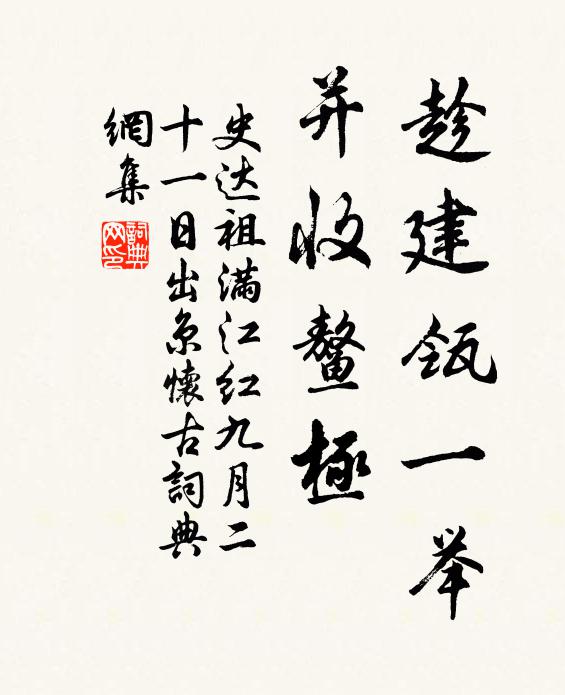 趁建瓴一举
并收鳌極
史达祖满江红九月二
十一日出京懷古詞典
網集
詞典
网印